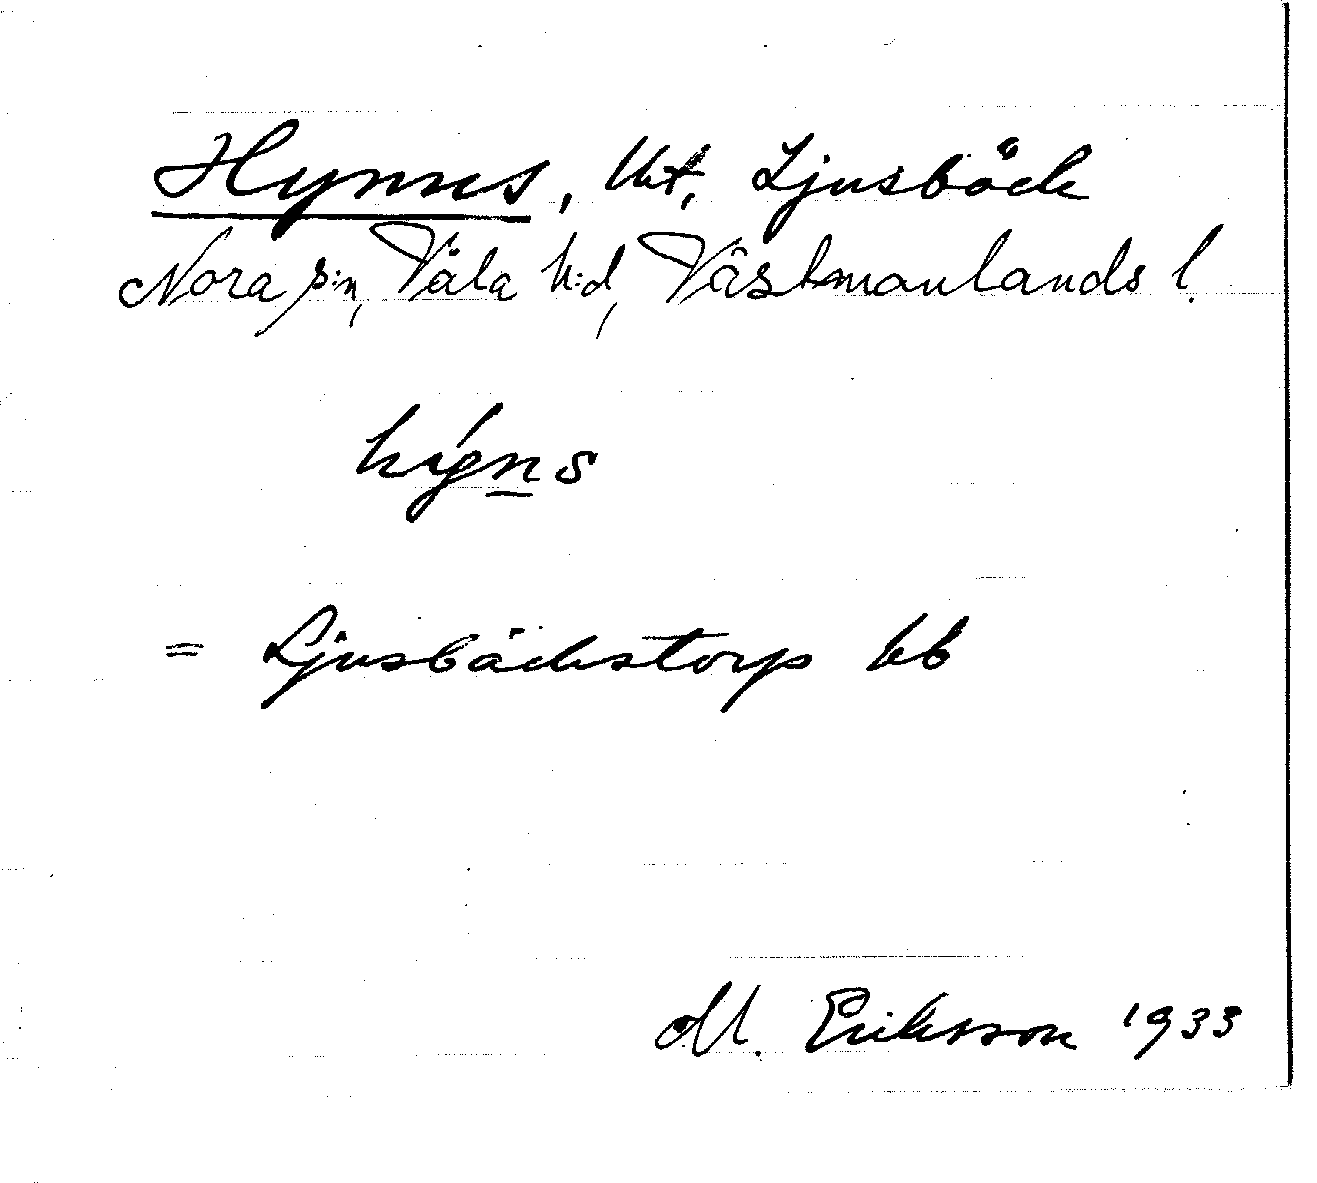 Hynns, kt, Ljusbäck
Nora s:n, Våla h:d, Västmanlands l.
hýn̲s
= Ljusbäckstorp kb
M. Eriksson 1933